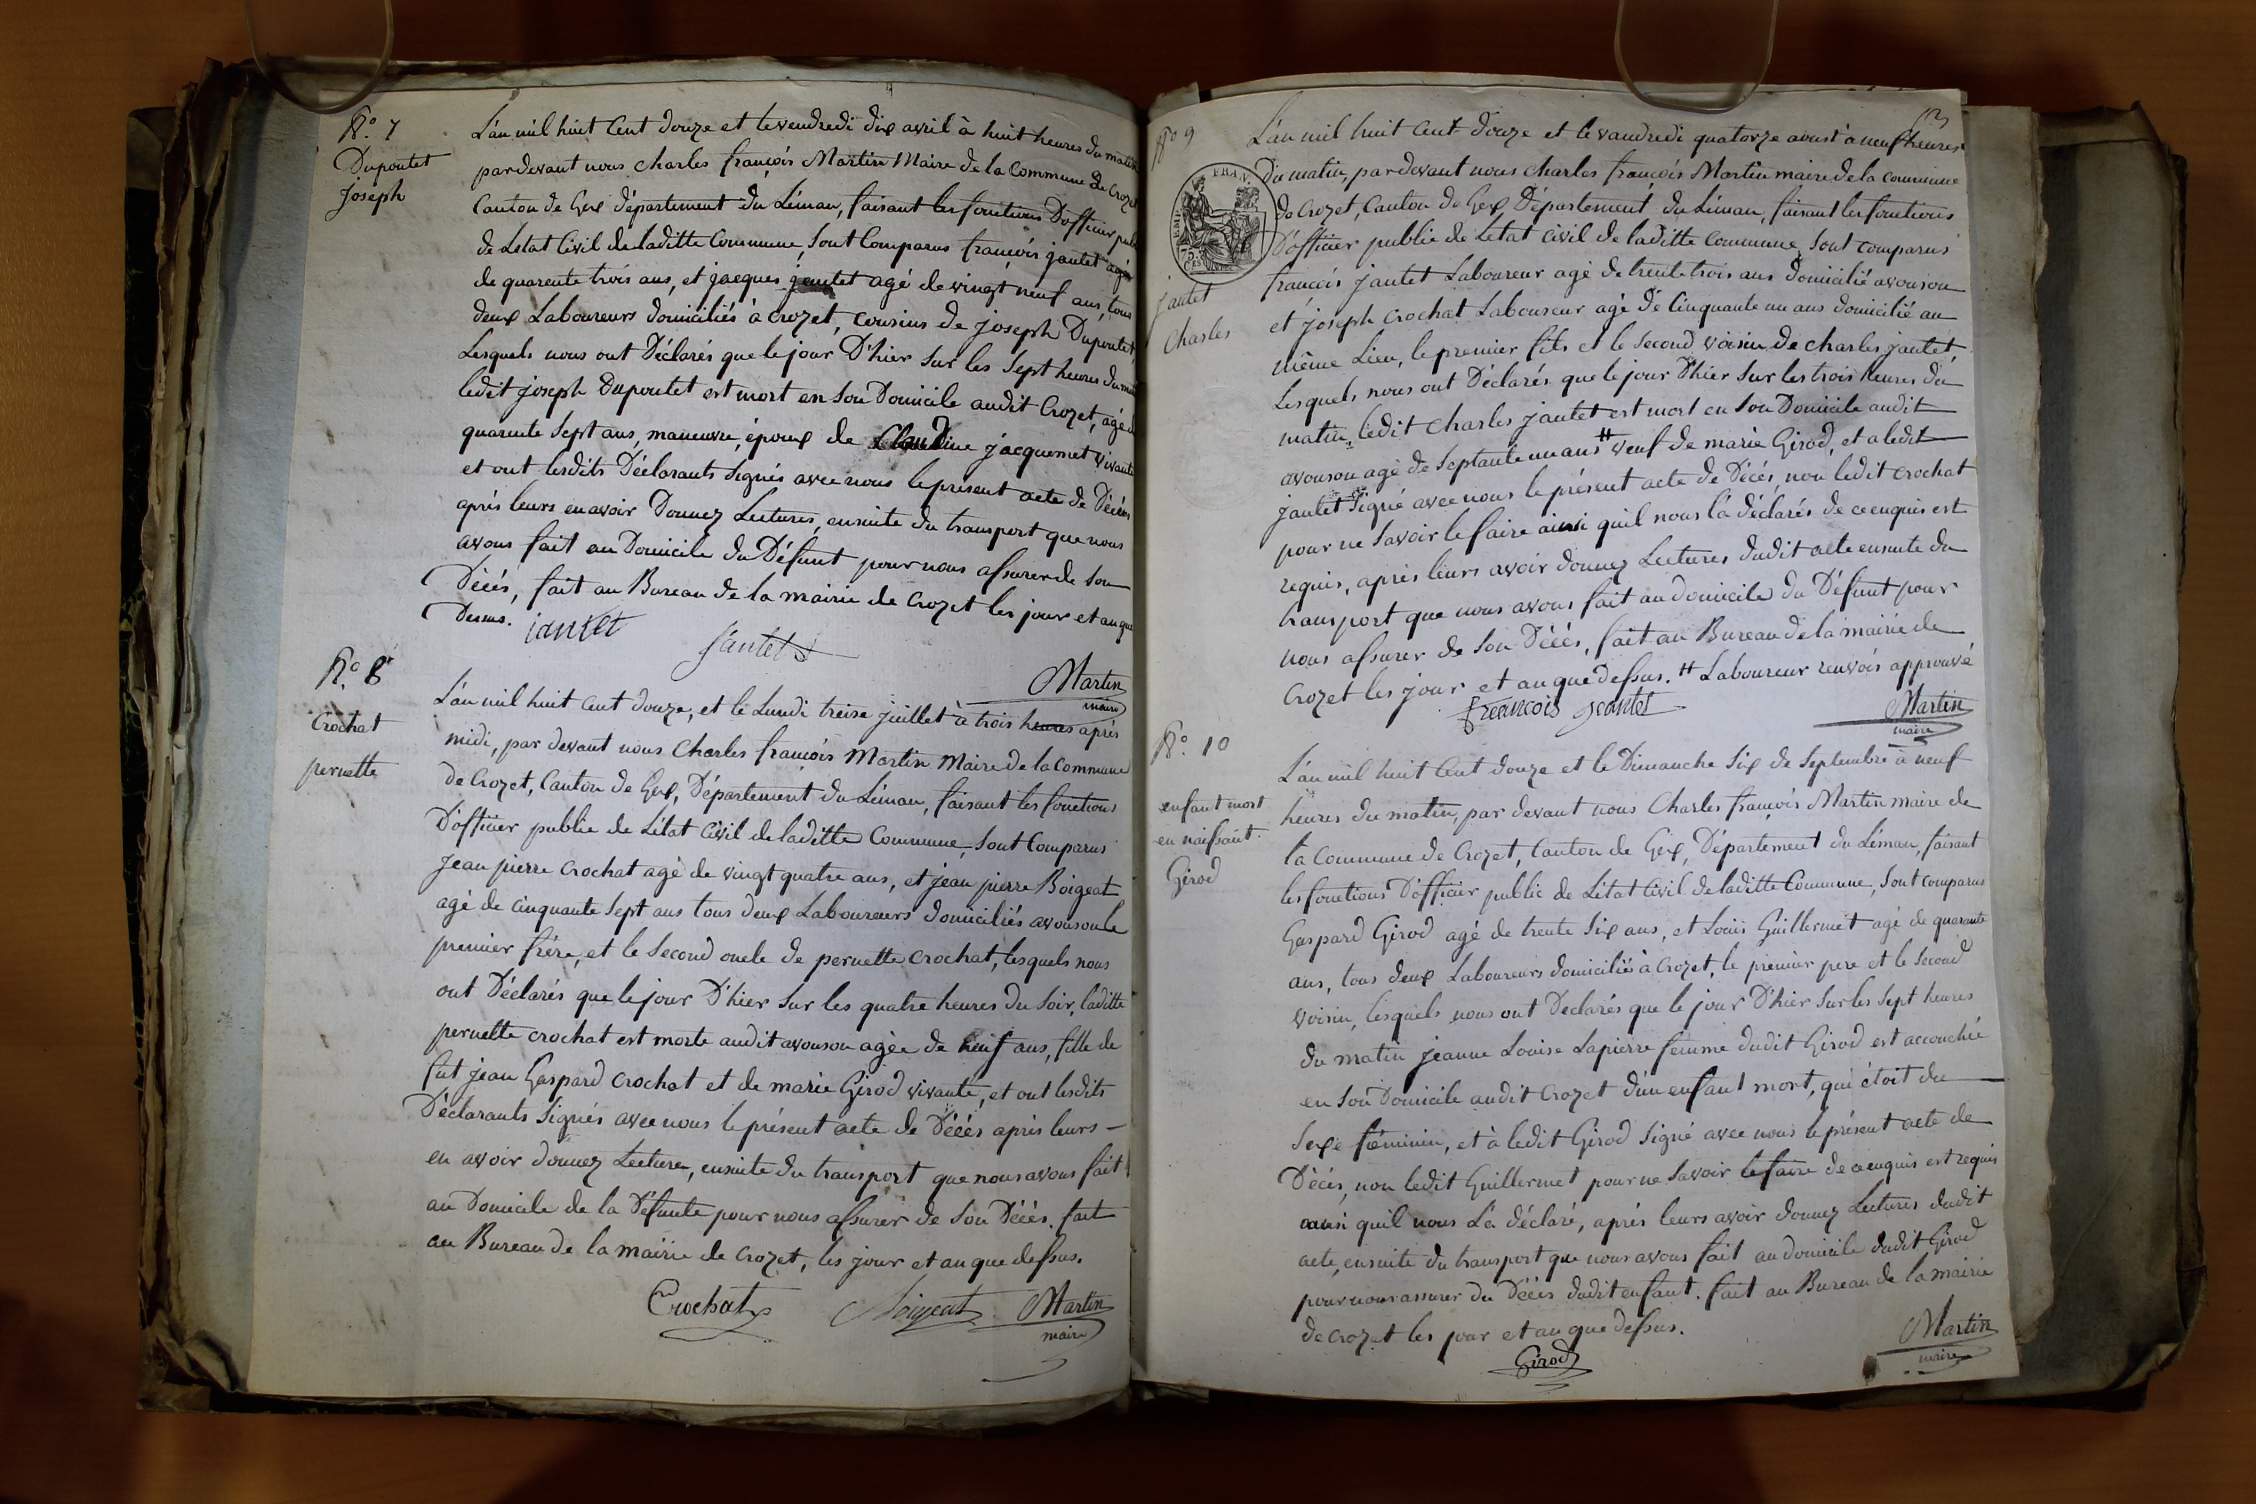 N.° 7
Dupontet
Joseph
L'an mil huit Cent douze et le vendredi dix avril à huit heures du matin
pardevant nous Charles françois Martin Maire de la Commune de Crozet
Canton de Gex département du Léman, faisant les fonctions D'officier publ
de Letat Civil de laditte Commune, sont Comparus françois jantet agé
de quarente trois ans, et jacques jantet agé de vingt neuf ans, tous
deux Laboureurs domiciliés à Crozet, cousins de joseph Dupontet,
Lesquels nous ont Déclarés que le jour D'hier sur les sept heures du ma
ledit joseph Dupontet est mort en son Domicile audit Crozet, agé d
quarente sept ans, maneuvre, époux de Claudine jacquemet vivante
et ont lesdits Déclarants signés avec nous le présent acte de Décés
aprés leurs en avoir Donnez Lectures, ensuite du transport que nous
avons fait au Domicile du Défunt pour nous assurer de son
Décés, fait au Bureau de la mairie de Crozet les jour et an que
Dessus. jantet
Jantet
Martin
maire
N.° 8
Crochat
pernette
L'an mil huit Cent douze, et le Lundi treise juillet à trois heures aprés
midi, par devant nous Charles françois Martin Maire de la Commune
de Crozet, Canton de Gex, Département du Léman, faisant les fonctions
D'officier public de L'état Civil de laditte Commune, sont Comparus
Jean pierre Crochat agé de vingt quatre ans, et jean pierre Boigeat
agé de cinquante sept ans tous deux Laboureurs domiciliés avouson le
premier frére, et le second oncle de pernette Crochat, lesquels nous
ont Déclarés que le jour D'hier sur les quatre heures du soir, laditte
pernette crochat est morte audit avouson agée de neuf ans, fille de
fut jean Gaspard Crochat et de marie Girod vivante, et ont lesdits
Déclarants signés avec nous le présent acte de Décés aprés leurs
en avoir donnez Lecture, ensuite du transport que nous avons fait
au Domicile de la Défunte pour nous assurer de son Décés. fait
au Bureau de la mairie de Crozet, les jour et an que dessus.
Crochat
Boigeat
Martin
maire
13
N° 9
FRAN.
75
CES
jantet
Charles
L'an mil huit Cent douze et le vandredi quatorze aoust à neuf heures
Du matin, par devant nous Charles françois Martin maire de la commune
de Crozet, Canton de Gex Département du Léman, faisant les fonctions
D'officier public de Letat Civil de laditte Commune, sont comparus
françois jantet Laboureur agé de trente trois ans domicilié avouson
et joseph Crochat Laboureur agé de Cinquante un ans domicilié au
même Lieu, le premier fils et le second voisin de Charles jantet,
Lesquels nous ont Déclarés que le jour D'hier sur les trois heures du
matin, ledit Charles jantet est mort en son Domicile audit
avouson agé de septante un ans # veuf de marie Girod, et a ledit
jantet signé avec nous le présent acte de Décés, non ledit Crochat
pour ne savoir le faire ainsi quil nous l'a déclarés de ce enquis est
requis, aprés leurs avoir donnez Lectures dudit acte ensuite du
transport que nous avons fait au domicile du Défunt pour
nous assurer de son Décés, fait au Bureau de la mairie de
Crozet les jour et an que dessus. # Laboureur renvois approuvé
freancois jeantet
Martin
maire
N.° 10
enfant mort
en naissant.
Girod
L'an mil huit Cent douze et le Dimanche six de septembre à neuf
heures du matin, par devant nous Charles françois Martin maire de
la Commune de Crozet, Canton de Gex, Département du Léman, faisant
les fonctions D'officier public de L'état Civil de laditte Commune, sont comparus
Gaspard Girod agé de trente six ans, et Louis Guillermet agé de quarante
ans, tous deux Laboureurs domiciliés à Crozet, le premier pere et le second
voisin, lesquels nous ont Déclarés que le jour D'hier sur les sept heures
du matin jeanne Louise Lapierre femme dudit Girod est accouchée
en son Domicile audit Crozet d'un enfant mort, qui étoit du
sexe fœminin, et à ledit Girod signé avec nous le présent acte de
Décés, non ledit Guillermet pour ne savoir le faire de ce enquis est requis
ainsi quil nous L'a déclaré, aprés leurs avoir donnez Lectures dudit
acte, ensuite du transport que nous avons fait au domicile dudit Girod
pour nous assurer du Décés dudit enfant. fait au Bureau de la mairie
de Crozet les jour et an que dessus.
Girod
Martin
maire